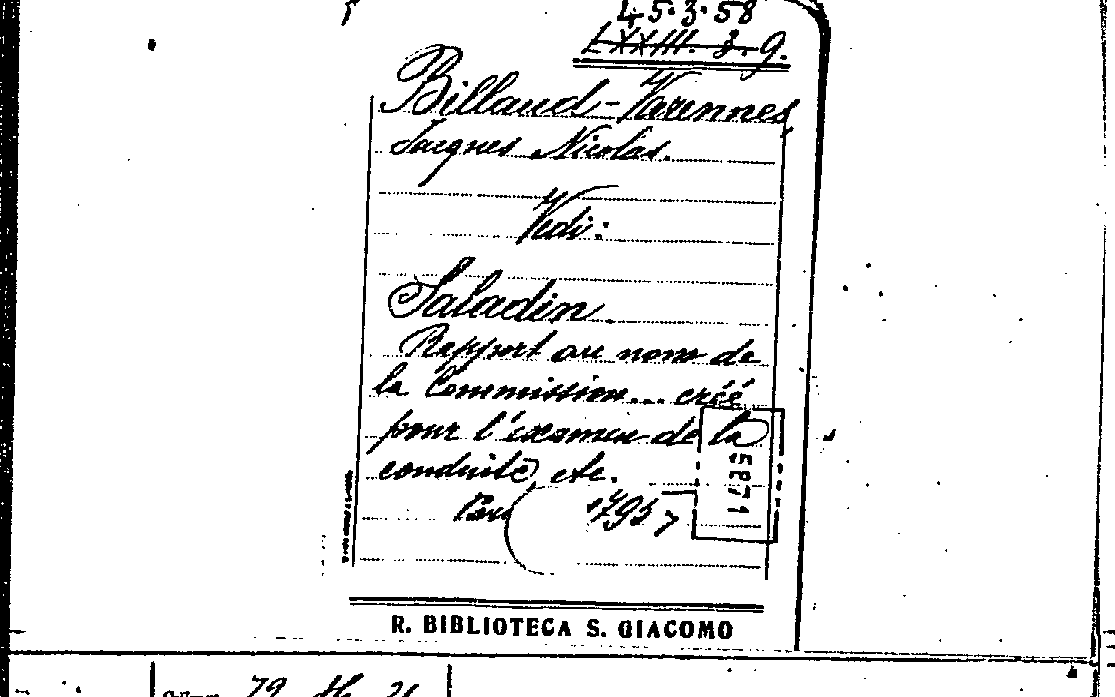 45.3.58
LXXIII. 3. 9.
Billaud-Varennes
Jacques Nicolas.
Vedi:
Saladin.
Rapport au nom de
la Commission... créé
pour l'examen de la
conduite, etc.
1795
5871
R. BIBLIOTECA S. GIACOMO
79